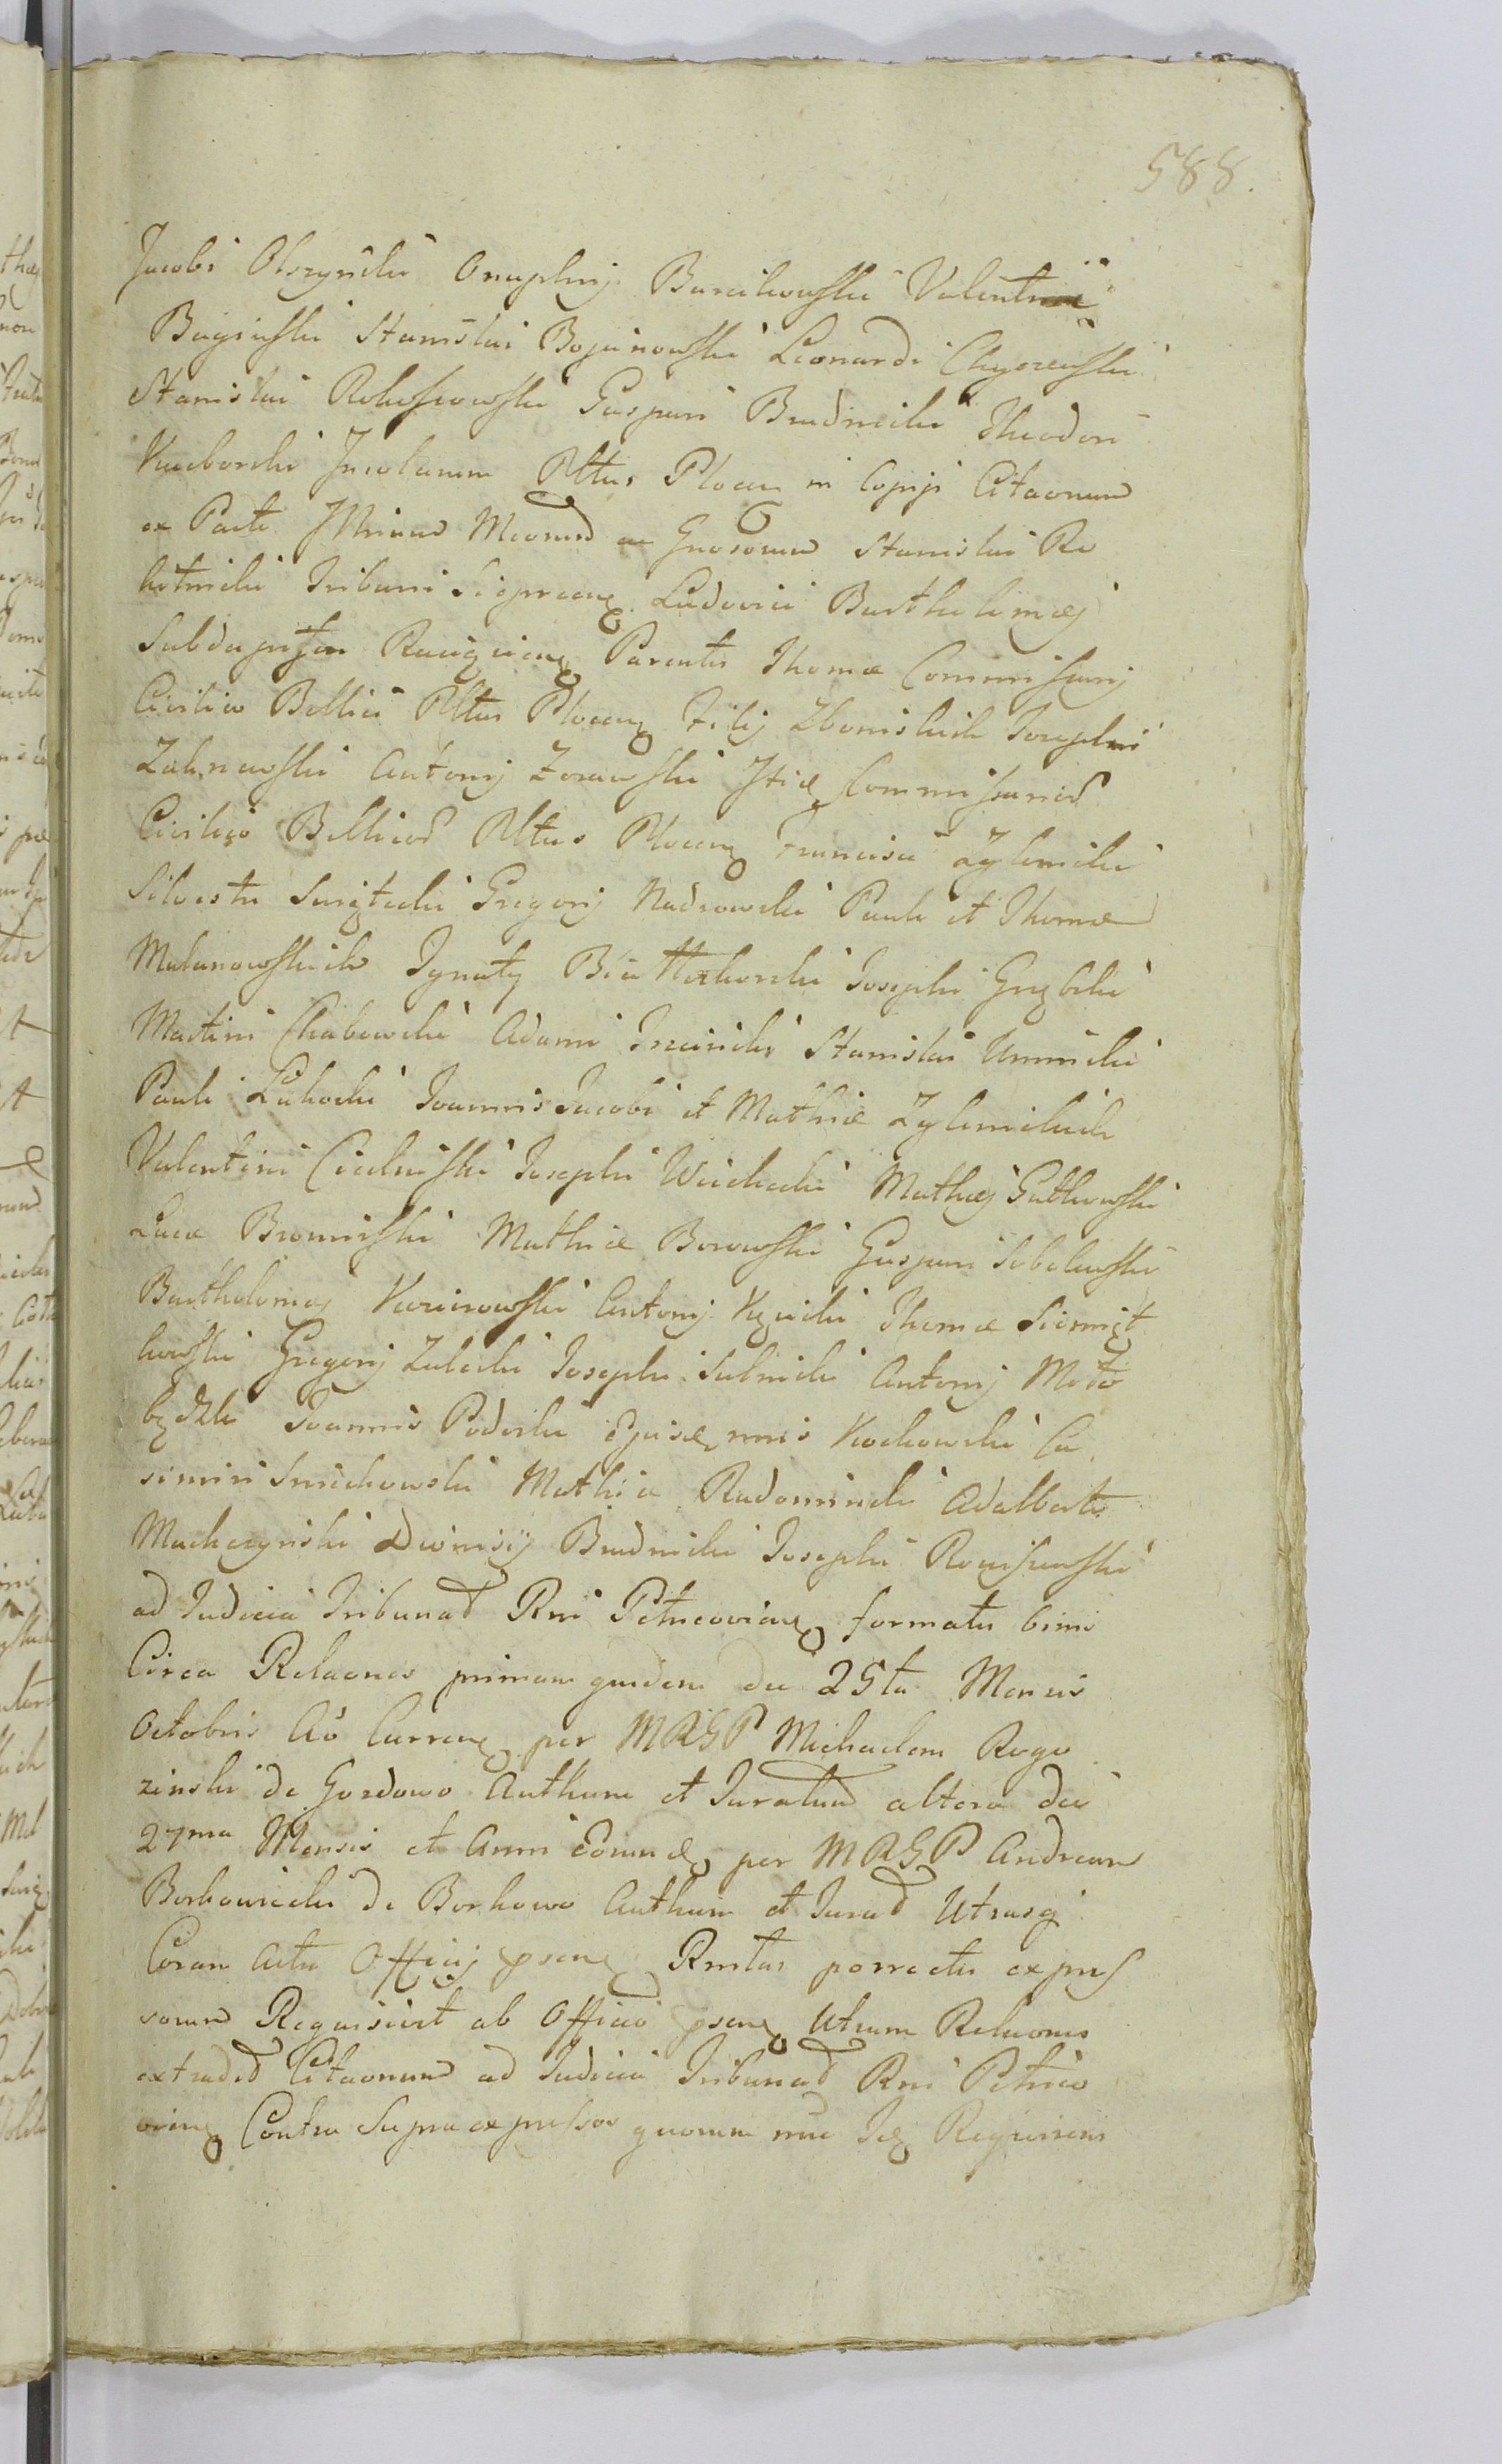 588.
Jacobi Olszynski Onuphrij Barcikowski Valentini
Bagieski Stanislai Bojanowski Leonardi Chyczewski
Stanislai Rokuszewski Gaspari Brudnicki Theodori
Karborski Incolarum Pltus Plocen in Copiji Citaonum
ex Parte Mcorum ac Gnosorum Stanislai Ro
kitnicki Tribuni Sieprcens Ludovici Bartholomej
Subdapiferi Raciąziens Parentis Thomae Commissarij
Civilio Bellici Pltus Plocens Filij Zboinskich Josephi
Zakrzewski Antonij Zorawski Commissariorum
Civilio Bellicor Pltus Plocens Francisci Zglenicki
Silvestri Świętecki Gregorij Nadrowski Pauli et Thomae
Malanowskich Ignaty Białoskorski Josephi Grębski
Martini Chabowski Adami Trzcinski Stanislai Uminski
Pauli Łukocki Joannis Jacobi et Mathiae Zglenickich
Valentini Cicharski Josephi Wichocki Mathej Gutkowski
Lucae Bromirski Mathiae Borowski Gaspari Sobolewski
Bartholomej Karnowski Antonij Kęsicki Thomae Siemięt
kowski Gregorij Zaleski Josephi Sulnicki Antonij Moto
będzki Joannis Podoski Ejusd nnis Kochowski Ca
simiri Smichowski Mathiae Radominski Adalberti
Machczynski Dionisij Brudnicki Josephi Romiszewski
ad Judicia Tribunal Rni Petricovien formatis binis
Circa Relaones primam quidem die 25ta Mensis
Octobris Ao Currens per MRGP Michaelem Rogo
zinski de Gozdowo Authum et Juratum altera die
27ma Mensis et Anni eorund per MRGP Andream
Borkowicki de Borkowo Authum et Jurat Utrasq
Coram Actis Officij psens Rmtus porrectis expres
sorum Requisivit ab Officio psens Utrum Relaones
extradit Citaonum ad Judicia Tribunal Rni Petrico
viens Contra Supra expressos quorum nne Idq Requirens